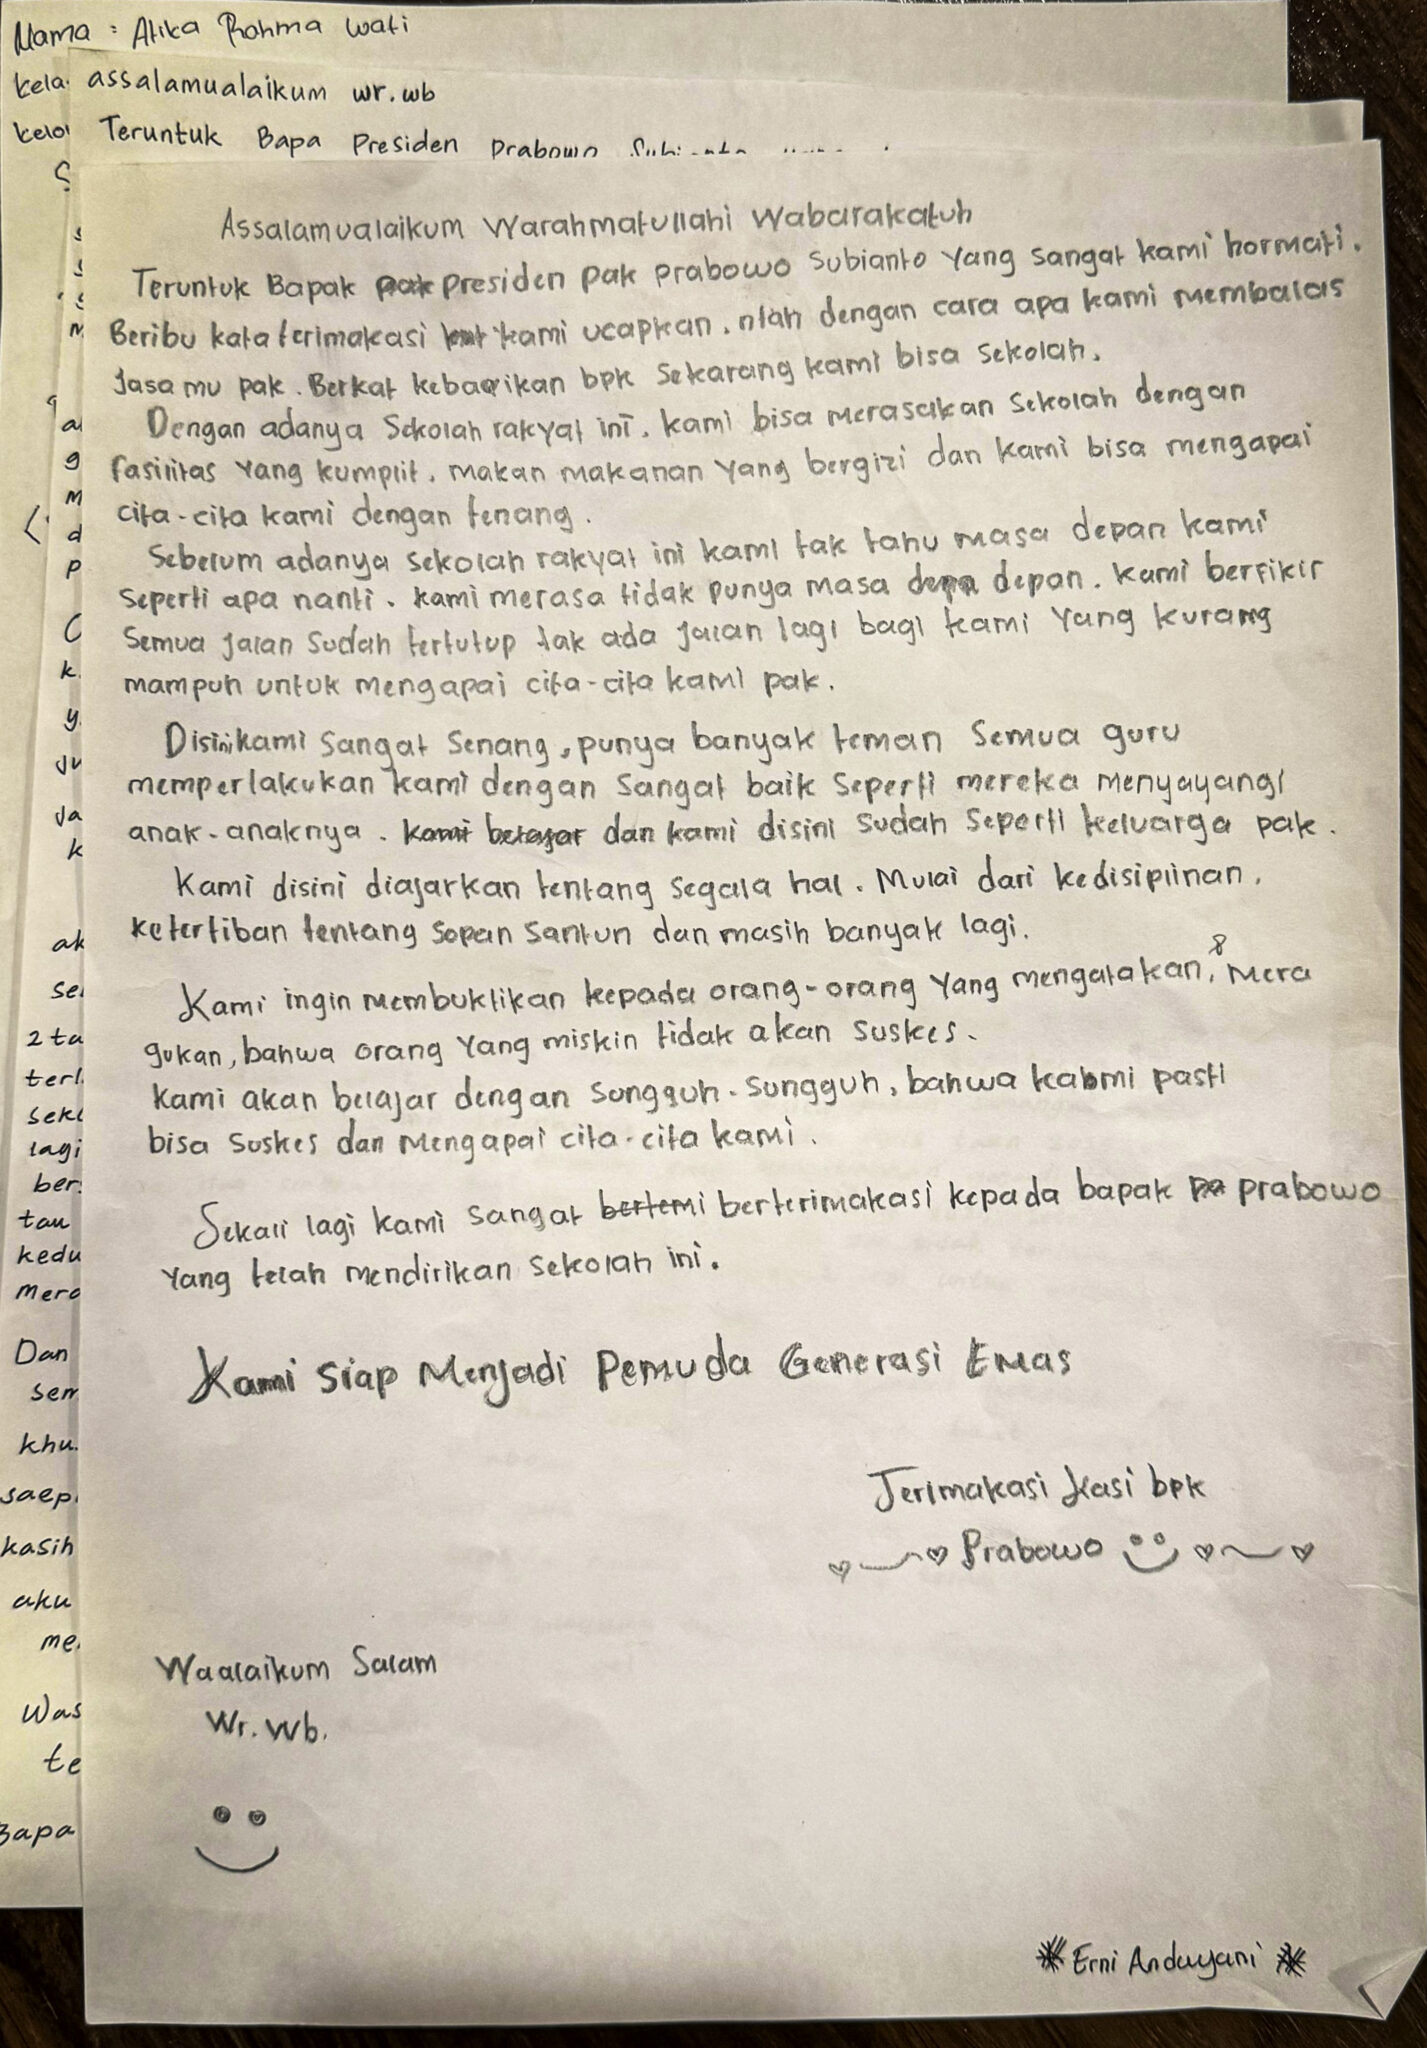 Nama : Atika Rahma wati
kela
assalamualaikum wr.wb
kelo
Teruntuk Bapa Presiden Prabowo Subianto
Assalamualaikum Warahmatullahi Wabarakatuh
Teruntuk Bapak pak presiden pak prabowo subianto yang sangat kami hormati.
Beribu kata terimakasi kami ucapkan. ntah dengan cara apa kami membalas
Jasa mu pak. Berkat kebaikan bpk sekarang kami bisa sekolah.
Dengan adanya Sekolah rakyat ini. kami bisa merasakan sekolah dengan
fasilitas yang kumplit. makan makanan yang bergizi dan kami bisa mengapai
cita-cita kami dengan tenang.
Sebelum adanya sekolah rakyat ini kami tak tahu masa depan kami
seperti apa nanti. kami merasa tidak punya masa depa depan. kami berfikir
semua jalan sudah tertutup tak ada jalan lagi bagi kami yang kurang
mampuh untuk mengapai cita-cita kami pak.
Disini kami sangat senang, punya banyak teman semua guru
memperlakukan kami dengan sangat baik seperti mereka menyayangi
anak-anaknya. kami belajar dan kami disini sudah seperti keluarga pak.
Kami disini diajarkan tentang segala hal. Mulai dari kedisiplinan,
ketertiban tentang sopan santun dan masih banyak lagi.
Kami ingin membuktikan kepada orang-orang yang mengatakan, & mera
gukan, bahwa orang yang miskin tidak akan suskes.
Kami akan belajar dengan sungguh-sungguh, bahwa kabmi pasti
bisa suskes dan mengapai cita-cita kami.
Sekali lagi kami sangat bertemi berterimakasi kepada bapak pa prabowo
yang telah mendirikan sekolah ini.
Kami Siap Menjadi Pemuda Generasi Emas
Terimakasi kasi bpk
Prabowo
Waalaikum Salam
Wr. Wb.
Erni Andayani
al
g
m
d
p
k
y
Ju
Ja
k
ak
se
2 ta
terl
sek
lagi
ber
tau
kedu
mera
Dan
sem
khu
saep
kasih
aku
me
Was
te
Bapa